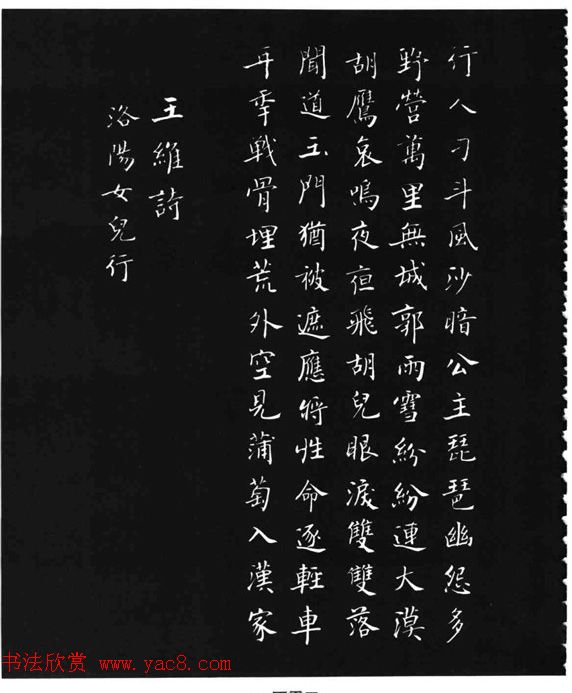 行人刁斗風沙暗公主琵琶幽怨多
野營萬里無城郭雨雪紛紛連大漠
胡鷹哀鳴夜夜飛胡兒眼淚雙雙落
聞道玉門猶被遮應將性命逐輕車
年年戰骨埋荒外空見蒲萄入漢家
王維詩
洛陽女兒行
书法欣赏 www.yac8.com